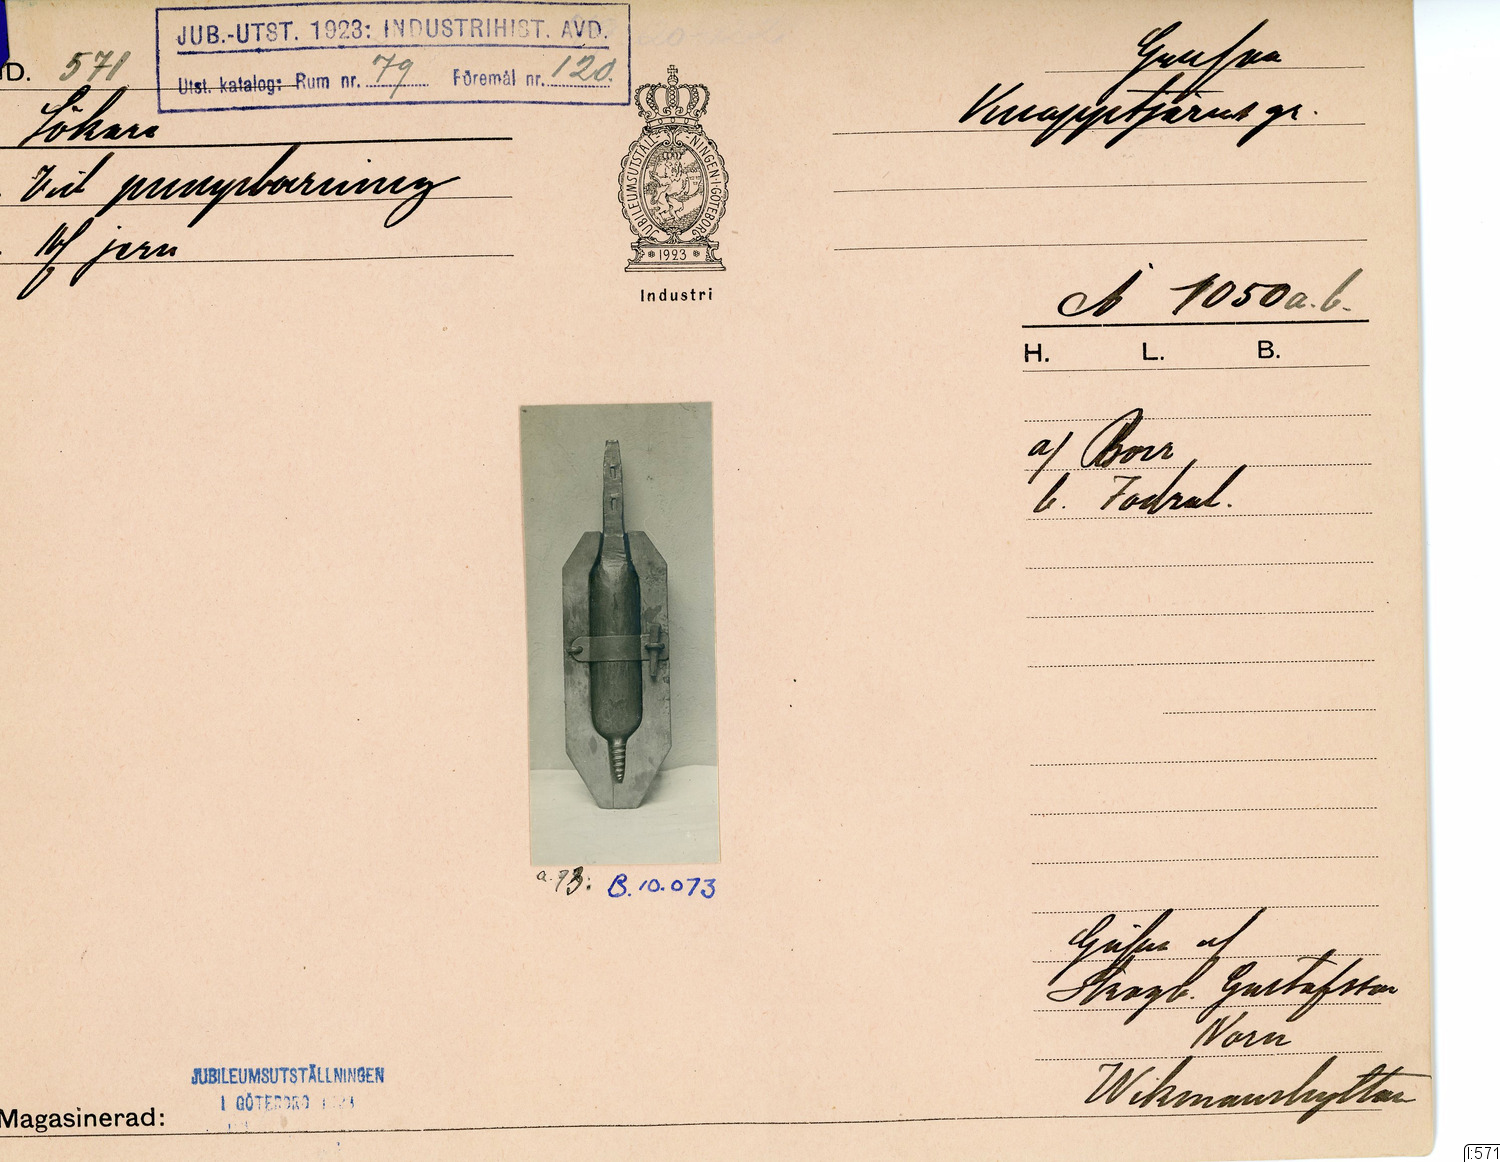 JUB.-UTST. 1923: INDUSTRIHIST. AVD.
Utst. katalog: Rum nr. 79 Föremål nr. 120.
D. 571
Sökare
Vid pumpborrning
Af jern
JUBILEUMSUTSTÄLLNINGEN·I·GÖTEBORG
1923
Industri
Knapptjärns gr.
N 1050 a. b.
H. L. B.
a/ Borr
b. Fodral.
a. 93: B.10.073
Gåfva af
Skogv. Gustafsson
Norn
Wikmanshyttan
JUBILEUMSUTSTÄLLNINGEN
I GÖTEBORG 1923
Magasinerad:
I:571